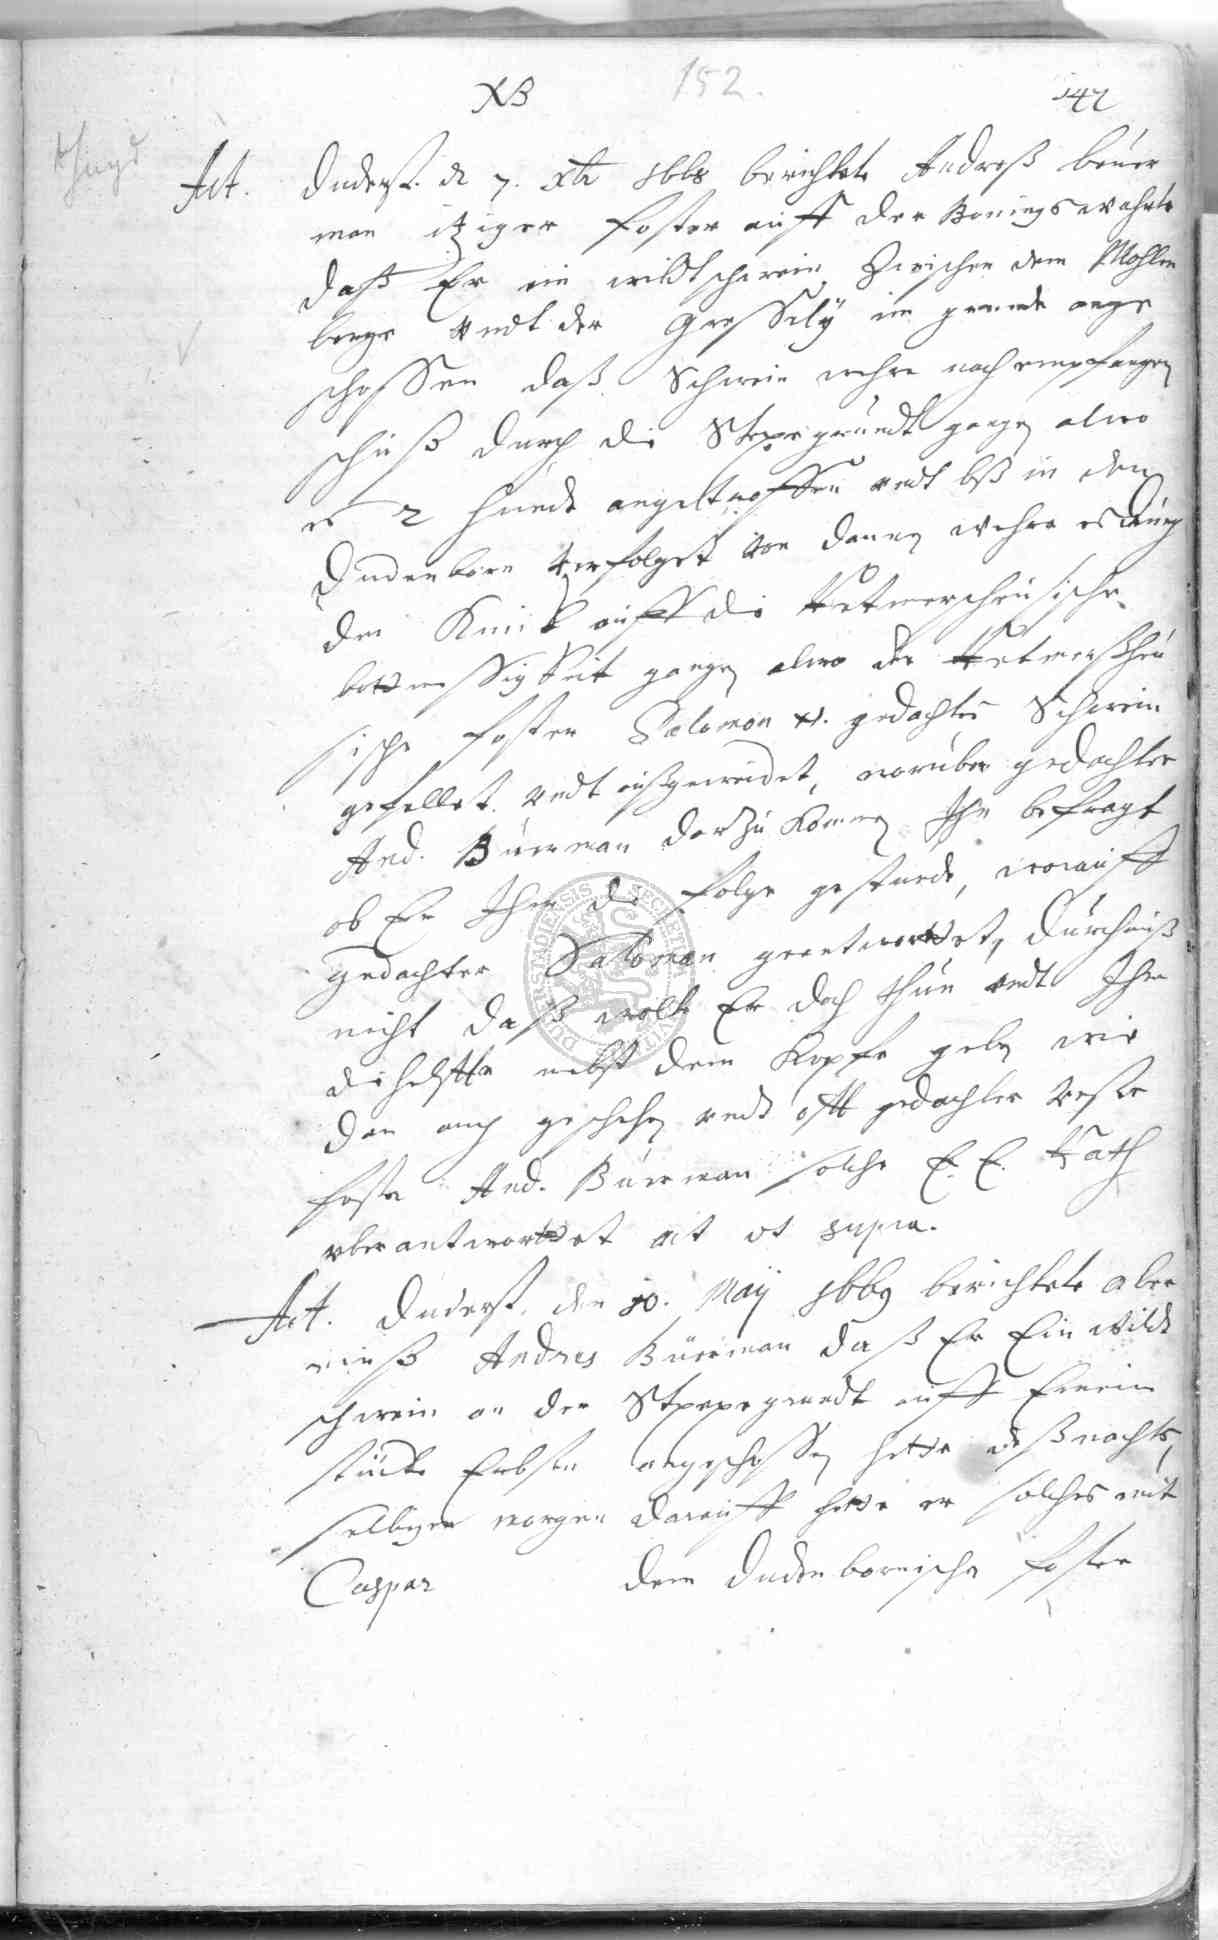 XB
152.
147
Jagd
Act. Duderst. d 7. Xbr 1668 berichtete Andreß Beuer
man itziger forster auff der Konings wahrte
daß Er ein wildtschwein Zwischen dem Mohlen
berge vndt der im grunde ange
schossen daß Schwein wehre nach empfangen
schuß durch die gründt gangen alwo
es 2 Hunde angetroffen vndt biß in den
Dudenborn verfolget von dannen wehre es durch
den Knick auff die
bottmessigkeit gangen alwo der
ische forster Salomon N. gedachtes Schwein
gefellet vndt außgeweidet, worüber gedachter
And. Büerman darzu kommen Ihn befragt
ob Er Ihm die folge gestünde, worauff
gedachter Salomon geantwortet, durchauß
nicht daß wolte Er doch thun vndt Ihm
die helffte nebst dem Kopfe geben wie
dan auch geschehen vndt offt gedachter
forster And. Büerman solche E. E. Rath
vberantwortet act vt supra.
Act. Duderst. den 10. Maij 1669 berichtete aber
mahlß Andres Büerman daß Er Ein wildt
schwein an der grundt auff Einem
stücke Erbsen angeschossen hette deß nachts,
selbigen morgen darauff hette er solches mit
Caspar dem Dudenbornische forster